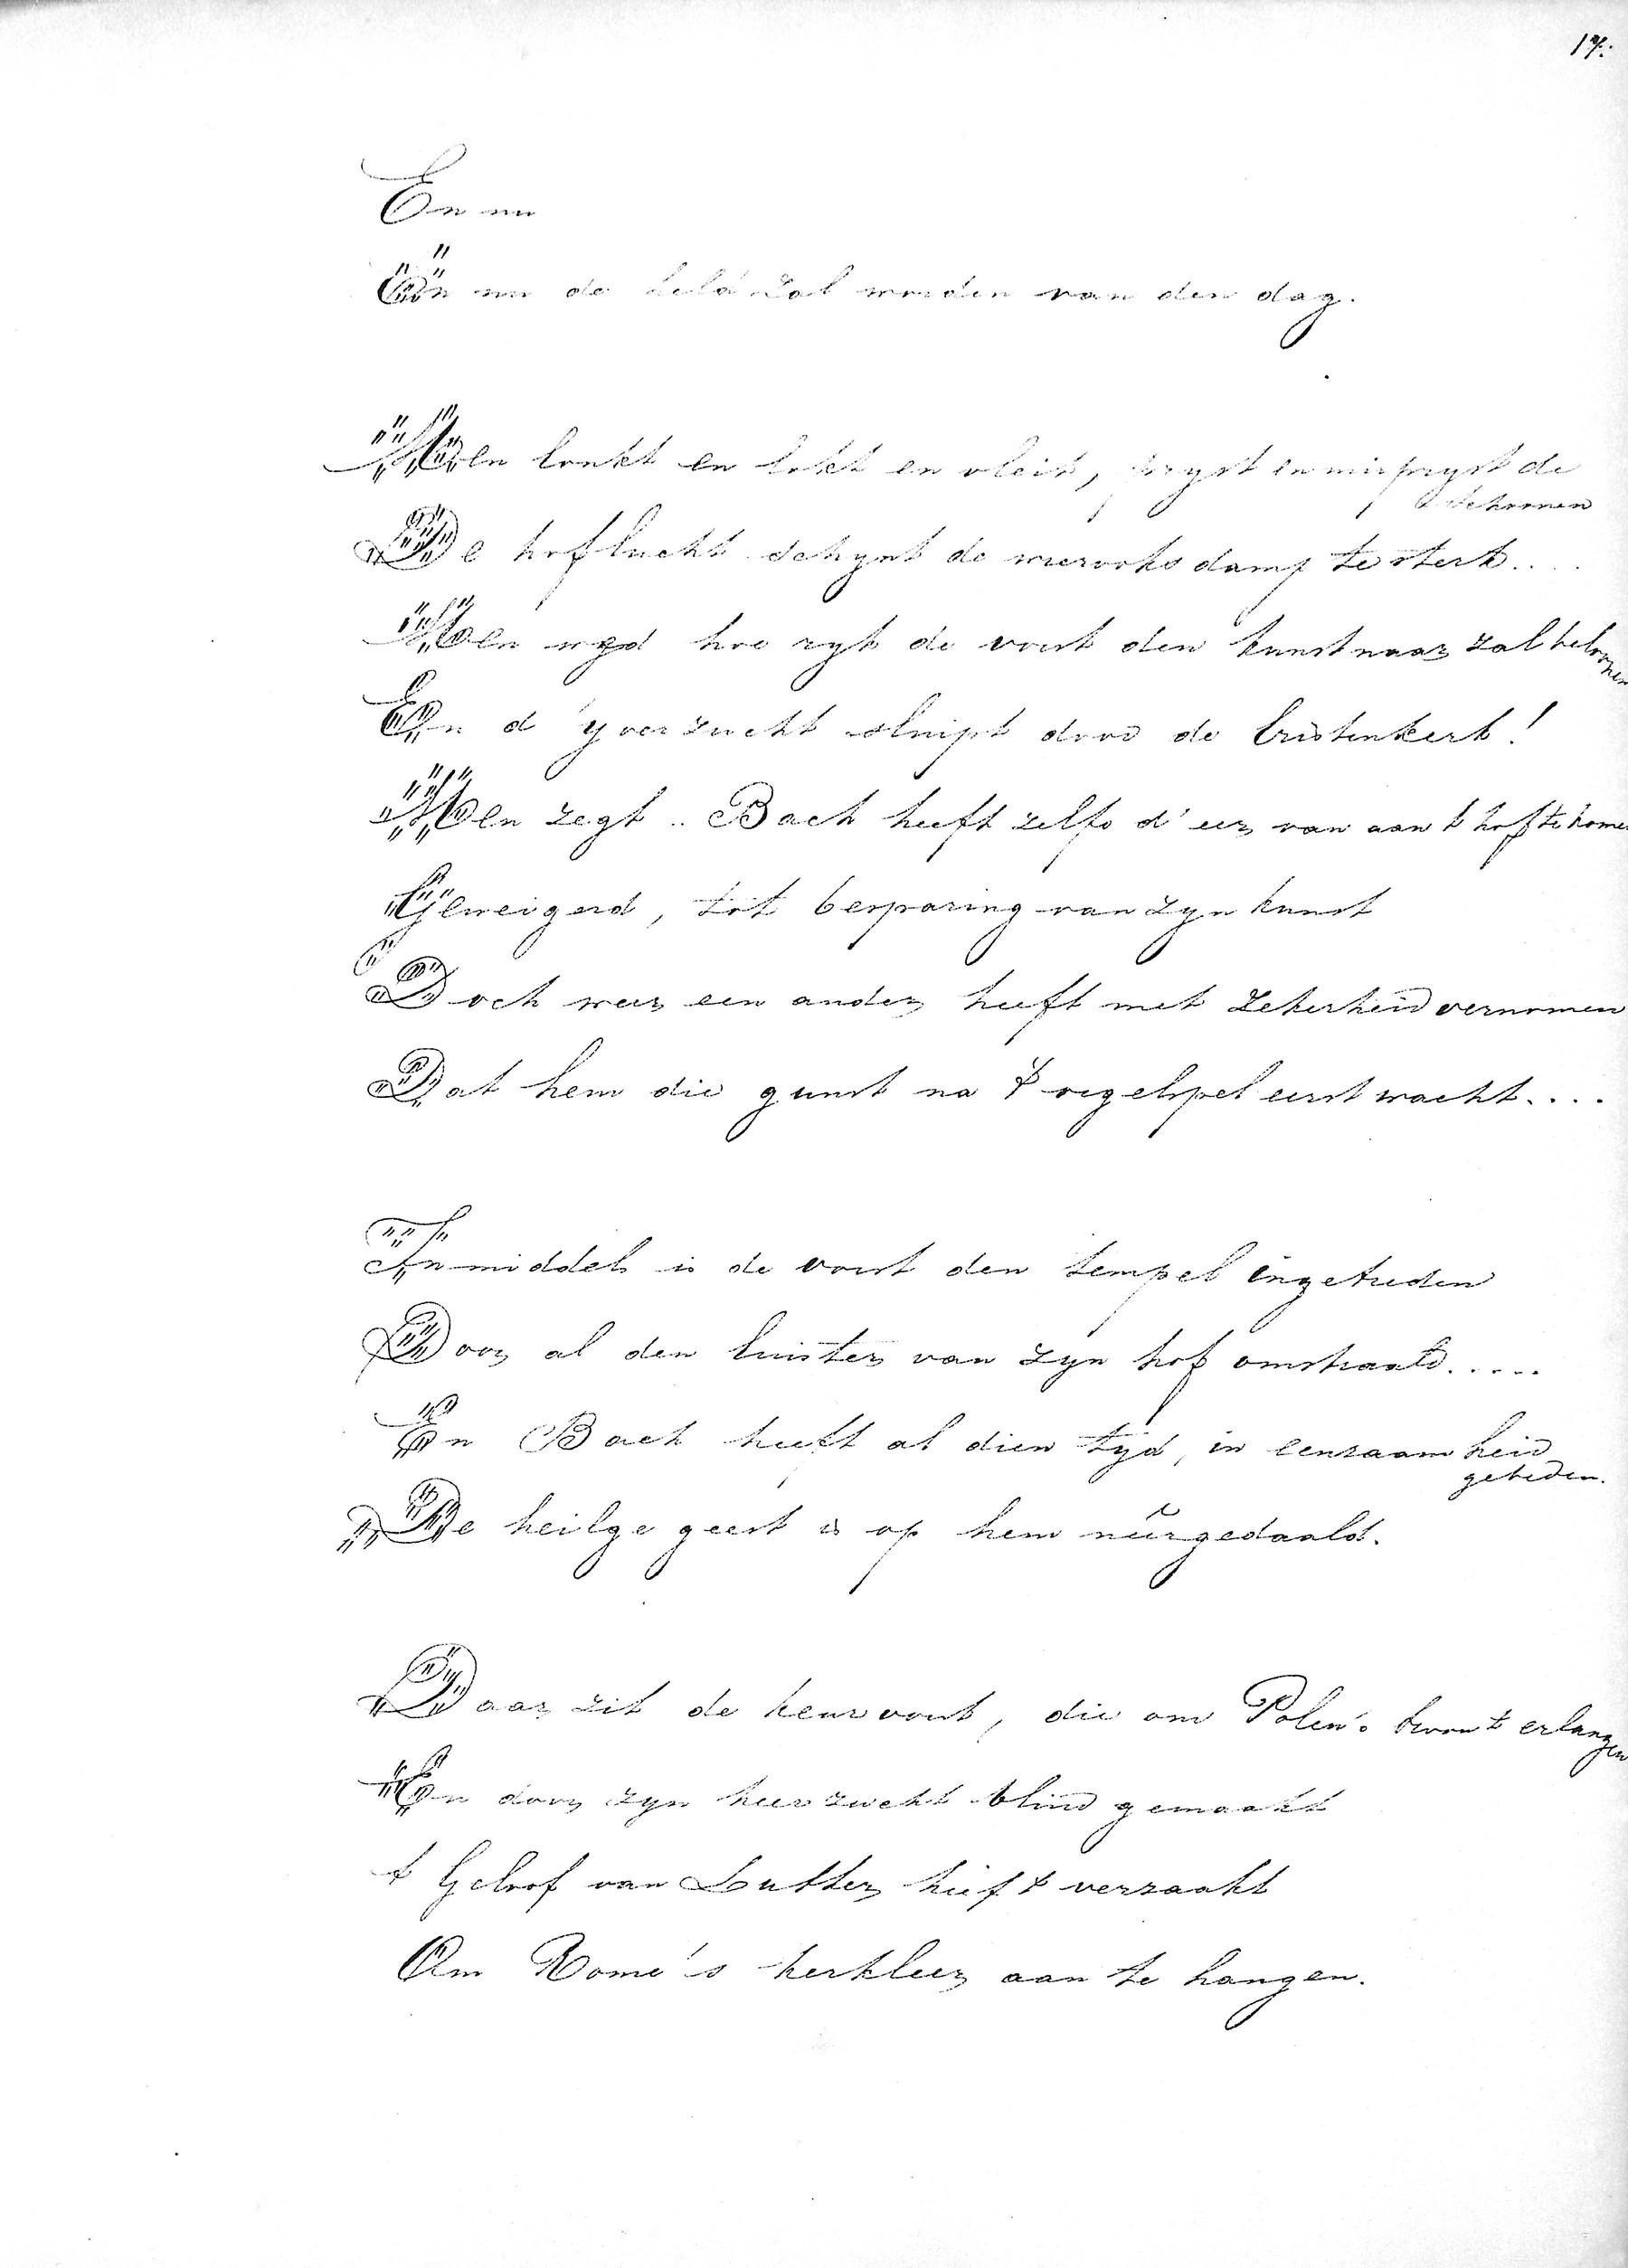 17.
En nu
En nu de held zal worden van den dag.
Men lonkt en lokt en vleit, prijst en misprijst de
schoonen
De hoflucht schijnt de wierooks damp te sterk....
Men wed hoe rijk de vorst den kunstnaar zal beloonen
En d'yverzucht sluipt door de Cristenkerk!
Men zegt .. Bach heeft zelfs d'eer van aan t hof te komen
Geweigerd, tot besparing van zijn kunst
Doch weer een ander heeft met zekerheid vernomen
Dat hem die gunst na t orgelspel eerst wacht....
Inmiddels is de vorst den tempel ingetreden
Door al den luister van zyn hof omstraald.....
En Bach heeft al dien tyd, in eenzaam heid
gebeden.
De heilge geest is op hem neergedaald.
Daar zit de keurvorst, die om Polen's kroon t erlangen
En door zyn heerzucht blind gemaakt
t Geloof van Luther heeft verzaakt
Om Rome's kerkleer aan te hangen.